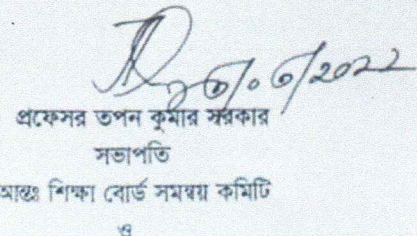 প্রফেসর তপন কুমার সরকার
সভাপতি
আন্তঃ শিক্ষা বোর্ড সমন্বয় কমিটি
ও